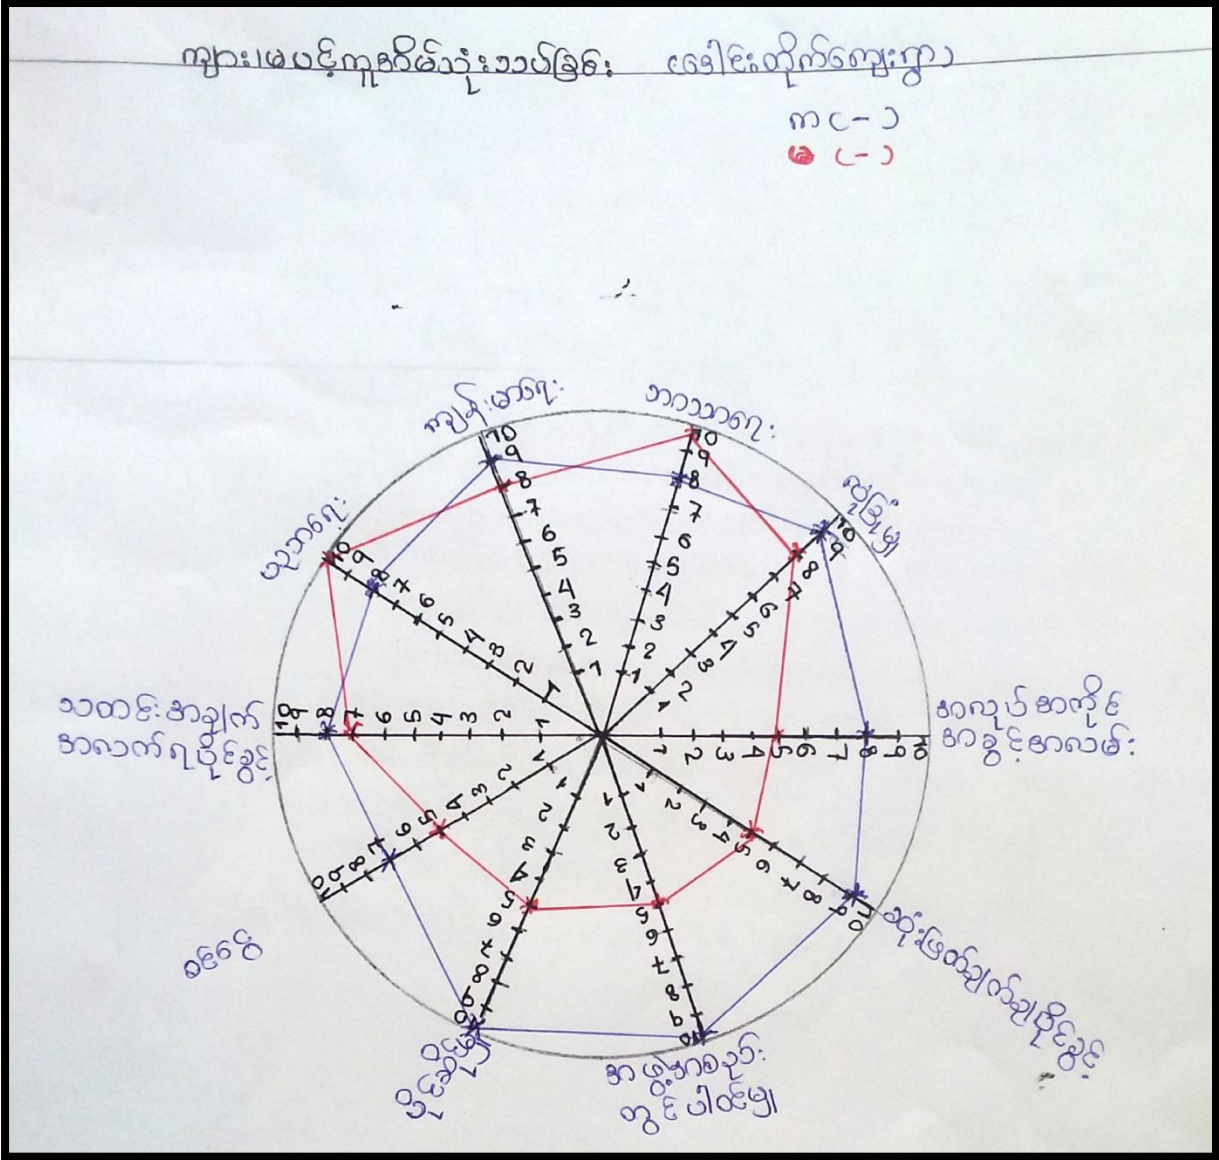 ကျား၊မပင့်ကူအိမ်သုံးသပ်ခြင်း (ခေါင်းတိုက်ကျေးရွာ)
ကျ (-)
မ (-)
ကျန်းမာရေး
ဘာသာရေး
လုံခြုံမှု
အလုပ်အကိုင်
အခွင့်အလမ်း
ဆုံးဖြတ်ချက်ချပိုင်ခွင့်
အဖွဲ့အစည်း
တွင်ပါဝင်မှု
ပိုင်ဆိုင်မှု
ဝင်ငွေ
သတင်းအချက်
အလက်ရပိုင်ခွင့်
ပညာရေး
1 2 3 4 5 6 7 8 9 10
1 2 3 4 5 6 7 8 9 10
1 2 3 4 5 6 7 8 9 10
1 2 3 4 5 6 7 8 9 10
1 2 3 4 5 6 7 8 9 10
1 2 3 4 5 6 7 8 9 10
1 2 3 4 5 6 7 8 9 10
1 2 3 4 5 6 7 8 9 10
1 2 3 4 5 6 7 8 9 10
1 2 3 4 5 6 7 8 9 10